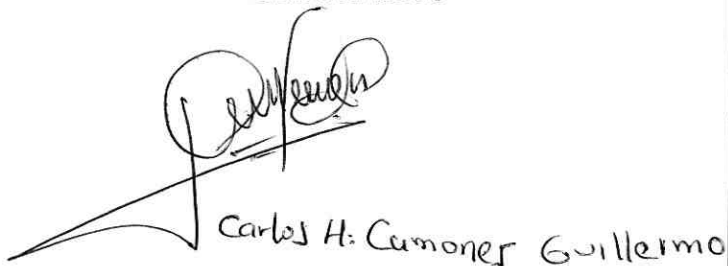 Carlos H. Camones Guillermo